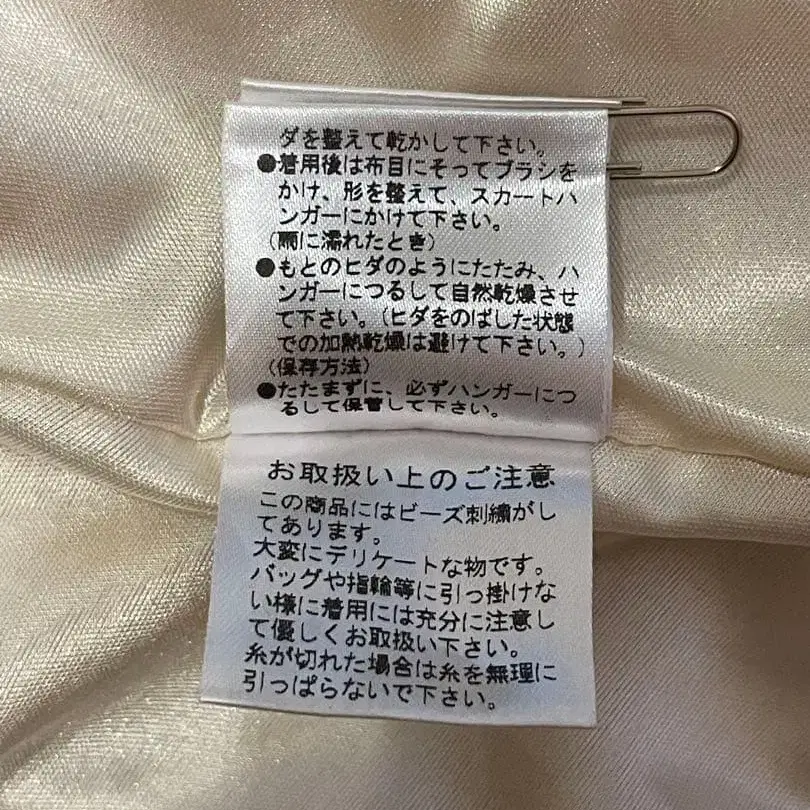 ダを整えて乾かして下さい。
●着用後は布目にそってブラシを
かけ、形を整えて、スカートハ
ンガーにかけて下さい。
(雨に濡れたとき)
●もとのヒダのようにたたみ、ハ
ンガーにつるして自然乾燥させ
て下さい。(ヒダをのばした状態
での加熱乾燥は避けて下さい。)
(保存方法)
●たたまずに、必ずハンガーにつ
るして保管して下さい。
お取扱い上のご注意
この商品にはビーズ刺繍がし
てあります。
大変にデリケートな物です。
バッグや指輪等に引っ掛けな
い様に着用には充分に注意し
て優しくお取扱い下さい。
糸が切れた場合は糸を無理に
引っぱらないで下さい。